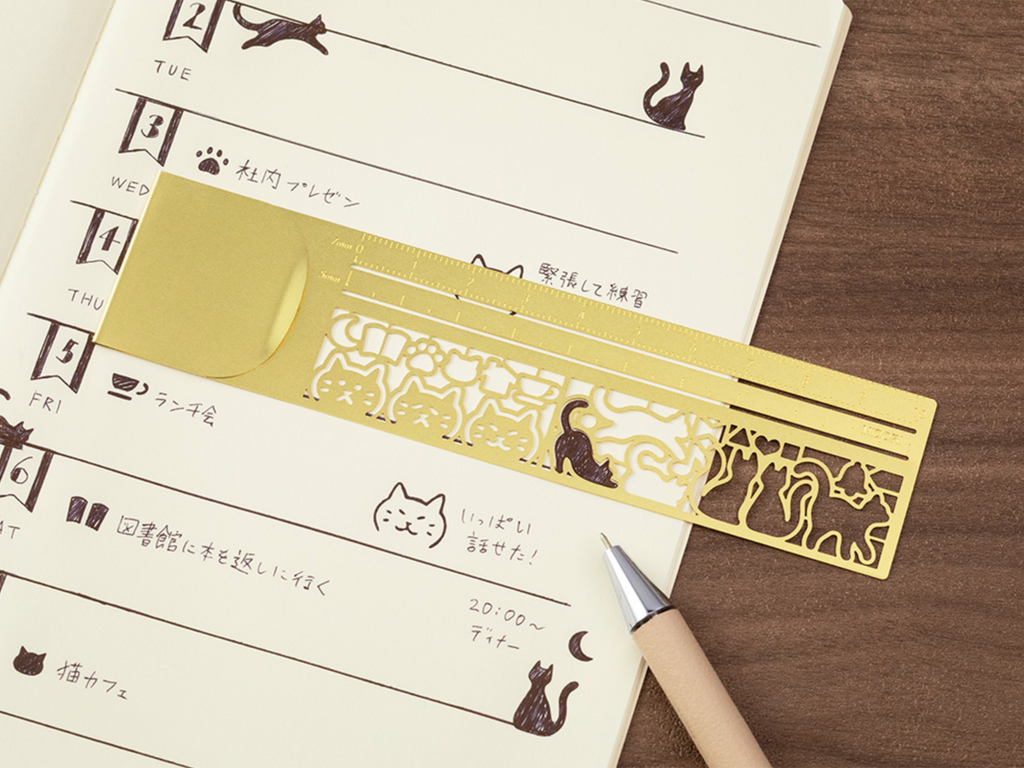 2
TUE
3
社内プレゼン
WED
4
緊張して練習
THU
5
ランチ会
FRI
6
いっぱい
話せた!
図書館に本を返しに行く
AT
20:00〜
ディナー
猫カフェ
1mm 0
5mm